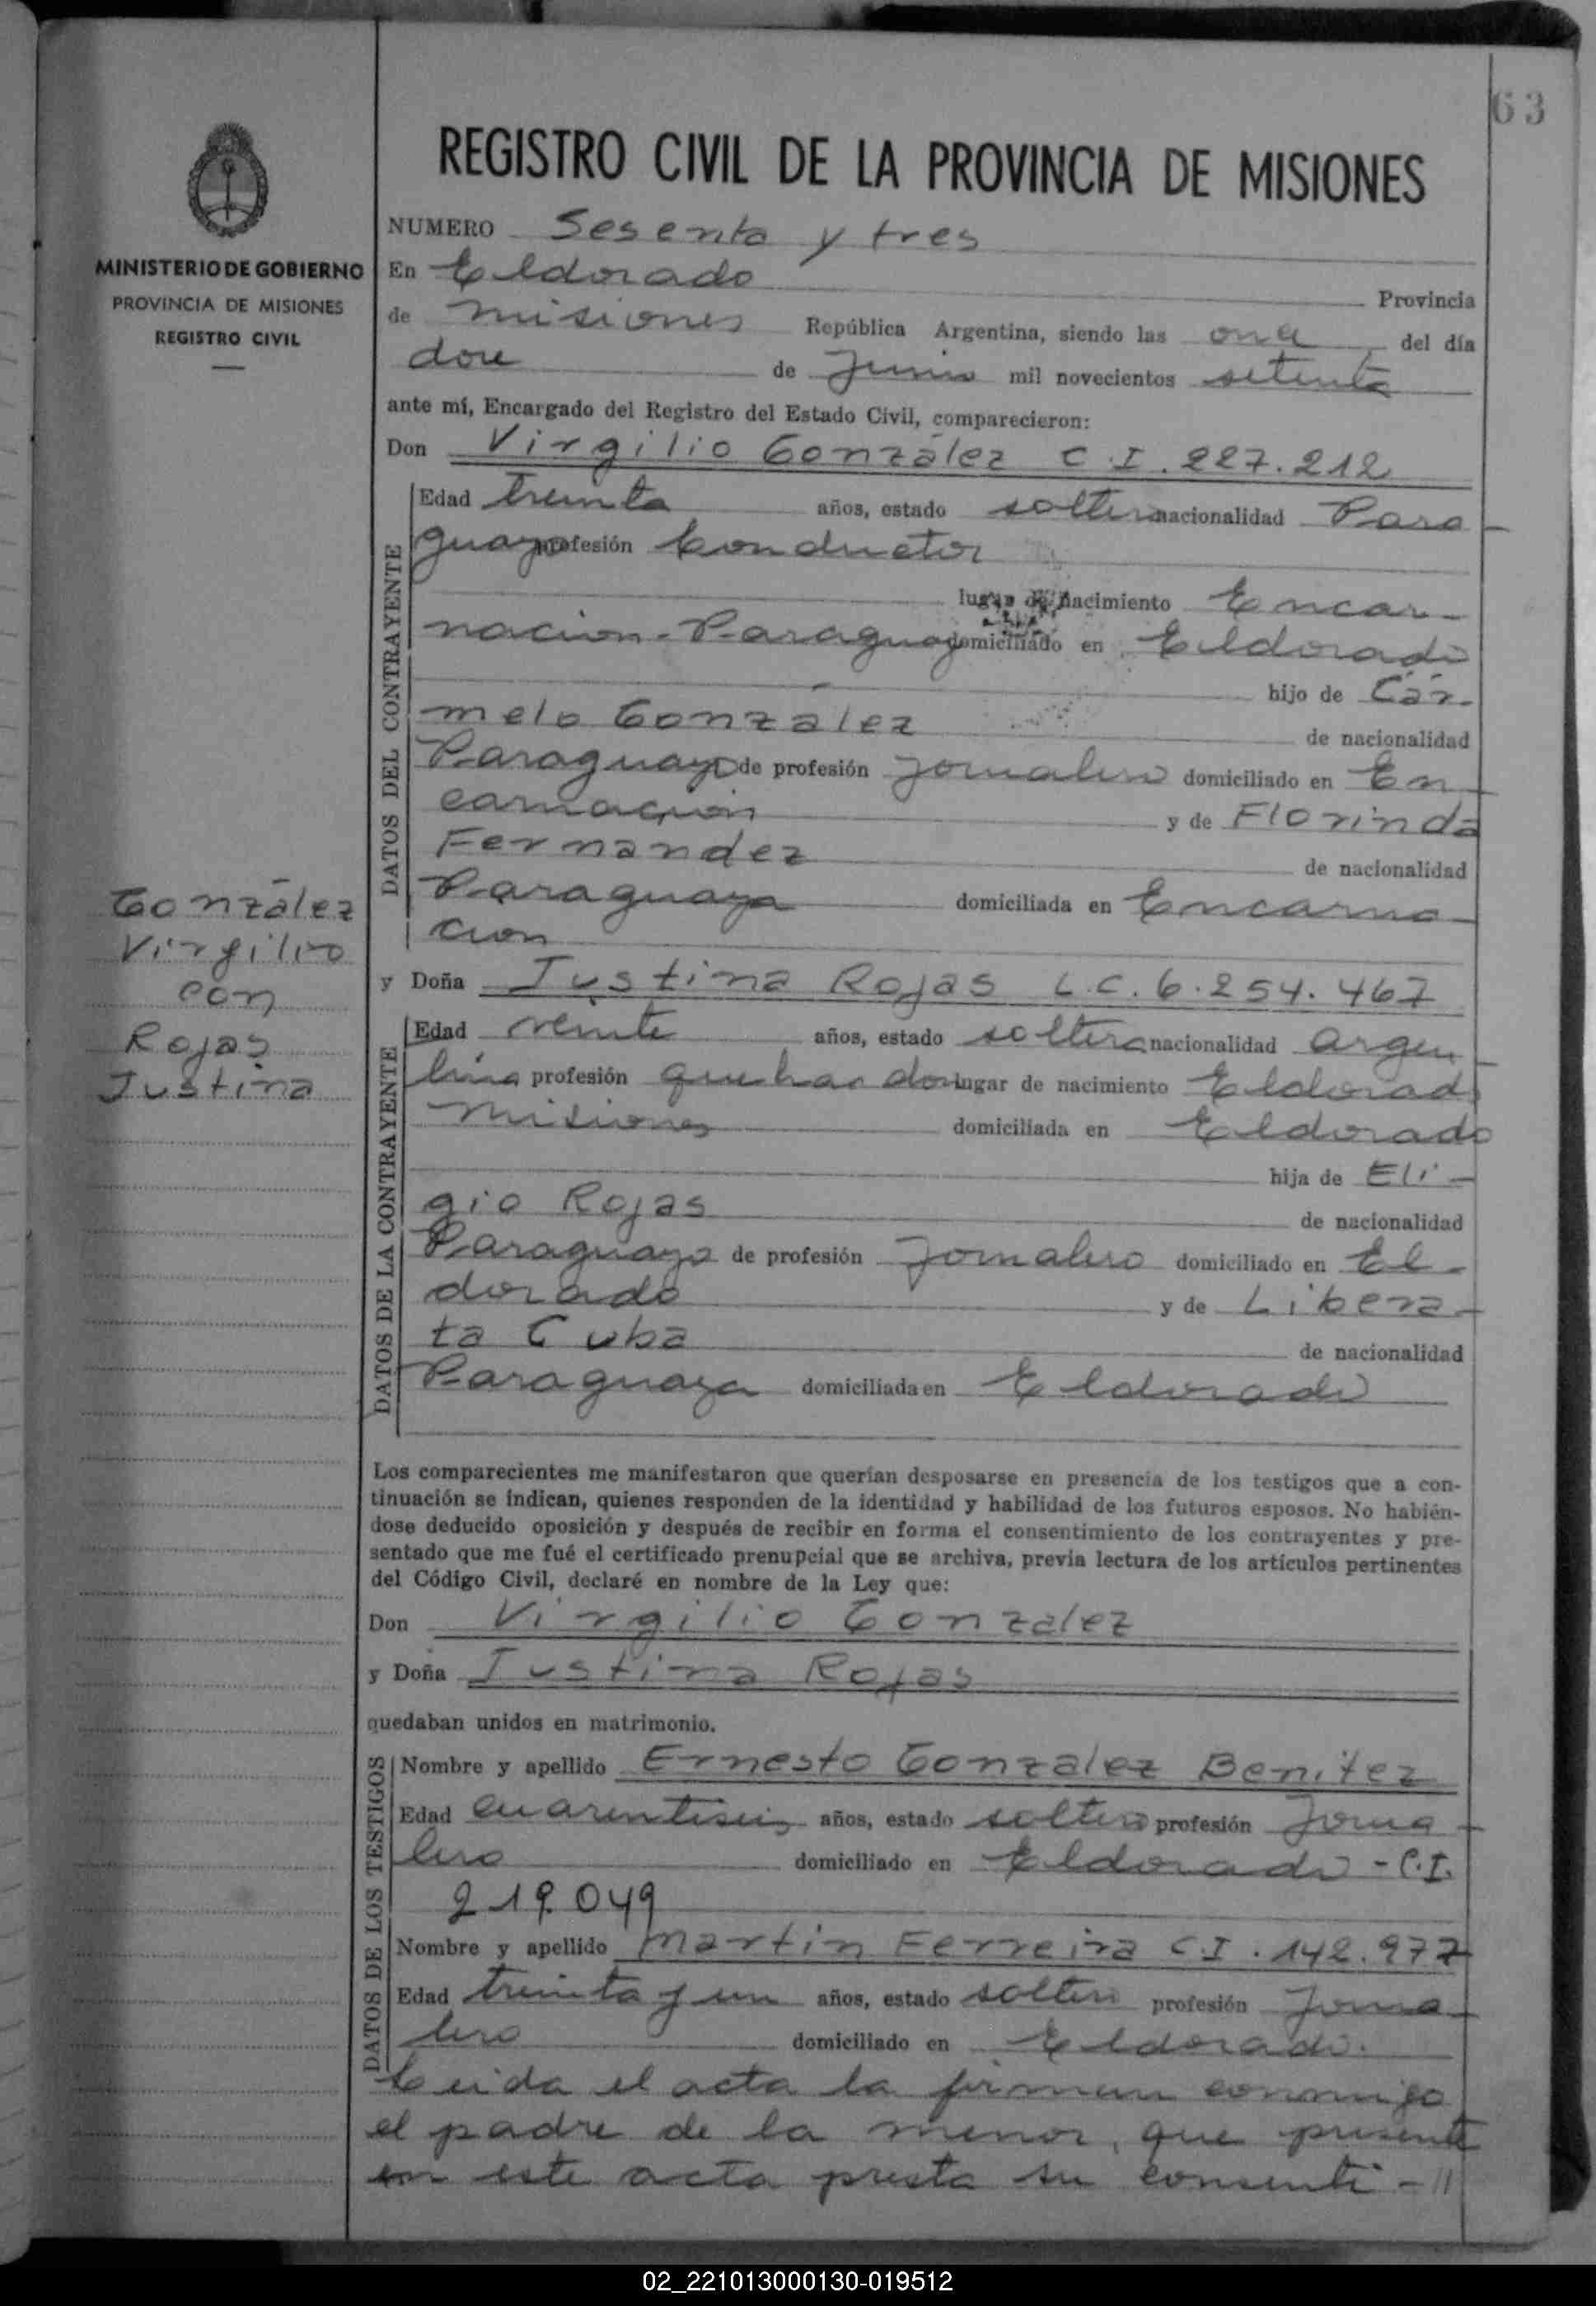 63
REGISTRO CIVIL DE LA PROVINCIA DE MISIONES
MINISTERIO DE GOBIERNO
PROVINCIA DE MISIONES
REGISTRO CIVIL
González
Virgilio
con
Rojas
Justina
NUMERO Sesenta y tres
En Eldorado Provincia
de Misiones República Argentina, siendo las once del día
doce de Junio mil novecientos setenta
ante mí, Encargado del Registro del Estado Civil, comparecieron:
Don Virgilio González C.I. 227.212
DATOS DEL CONTRAYENTE
Edad treinta años, estado soltero nacionalidad Para-
guayo profesión Conductor
lugar de nacimiento Encar-
nacion-Paraguay domiciliado en Eldorado
hijo de Car-
melo González
de nacionalidad
Paraguayo de profesión Jornalero domiciliado en En-
carnacion y de Florinda
Fernandez
de nacionalidad
Paraguaya domiciliada en Encarna-
cion
y Doña Justina Rojas L.C. 6.254.467
DATOS DE LA CONTRAYENTE
Edad veinte años, estado soltera nacionalidad argen-
tina profesión quehac. dom. lugar de nacimiento Eldorado
Misiones domiciliada en Eldorado
hija de Eli-
gio Rojas
de nacionalidad
Paraguayo de profesión Jornalero domiciliado en El-
dorado y de Libera-
ta Cuba
de nacionalidad
Paraguaya domiciliada en Eldorado
Los comparecientes me manifestaron que querían desposarse en presencia de los testigos que a con-
tinuación se indican, quienes responden de la identidad y habilidad de los futuros esposos. No habién-
dose deducido oposición y después de recibir en forma el consentimiento de los contrayentes y pre-
sentado que me fué el certificado prenupcial que se archiva, previa lectura de los artículos pertinentes
del Código Civil, declaré en nombre de la Ley que:
Don Virgilio Gonzalez
y Doña Justina Rojas
quedaban unidos en matrimonio.
DATOS DE LOS TESTIGOS
Nombre y apellido Ernesto Gonzalez Benitez
Edad cuarentiseis años, estado soltero profesión Jorna-
lero domiciliado en Eldorado - C.I.
219.049
Nombre y apellido Martin Ferreira C.I. 142.977
Edad treinta y un años, estado soltero profesión Jorna-
lero domiciliado en Eldorado.
Leida el acta la firman conmigo
el padre de la menor, que presente
en este acta presta su consenti-//
02_221013000130-019512